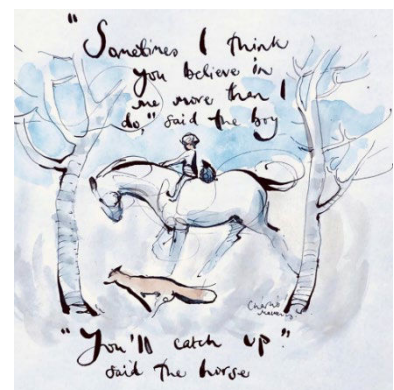 "Sometimes I think
you believe in
me more than I
do," said the boy
Charlie
Mackesy.
"You'll catch up"
said the horse